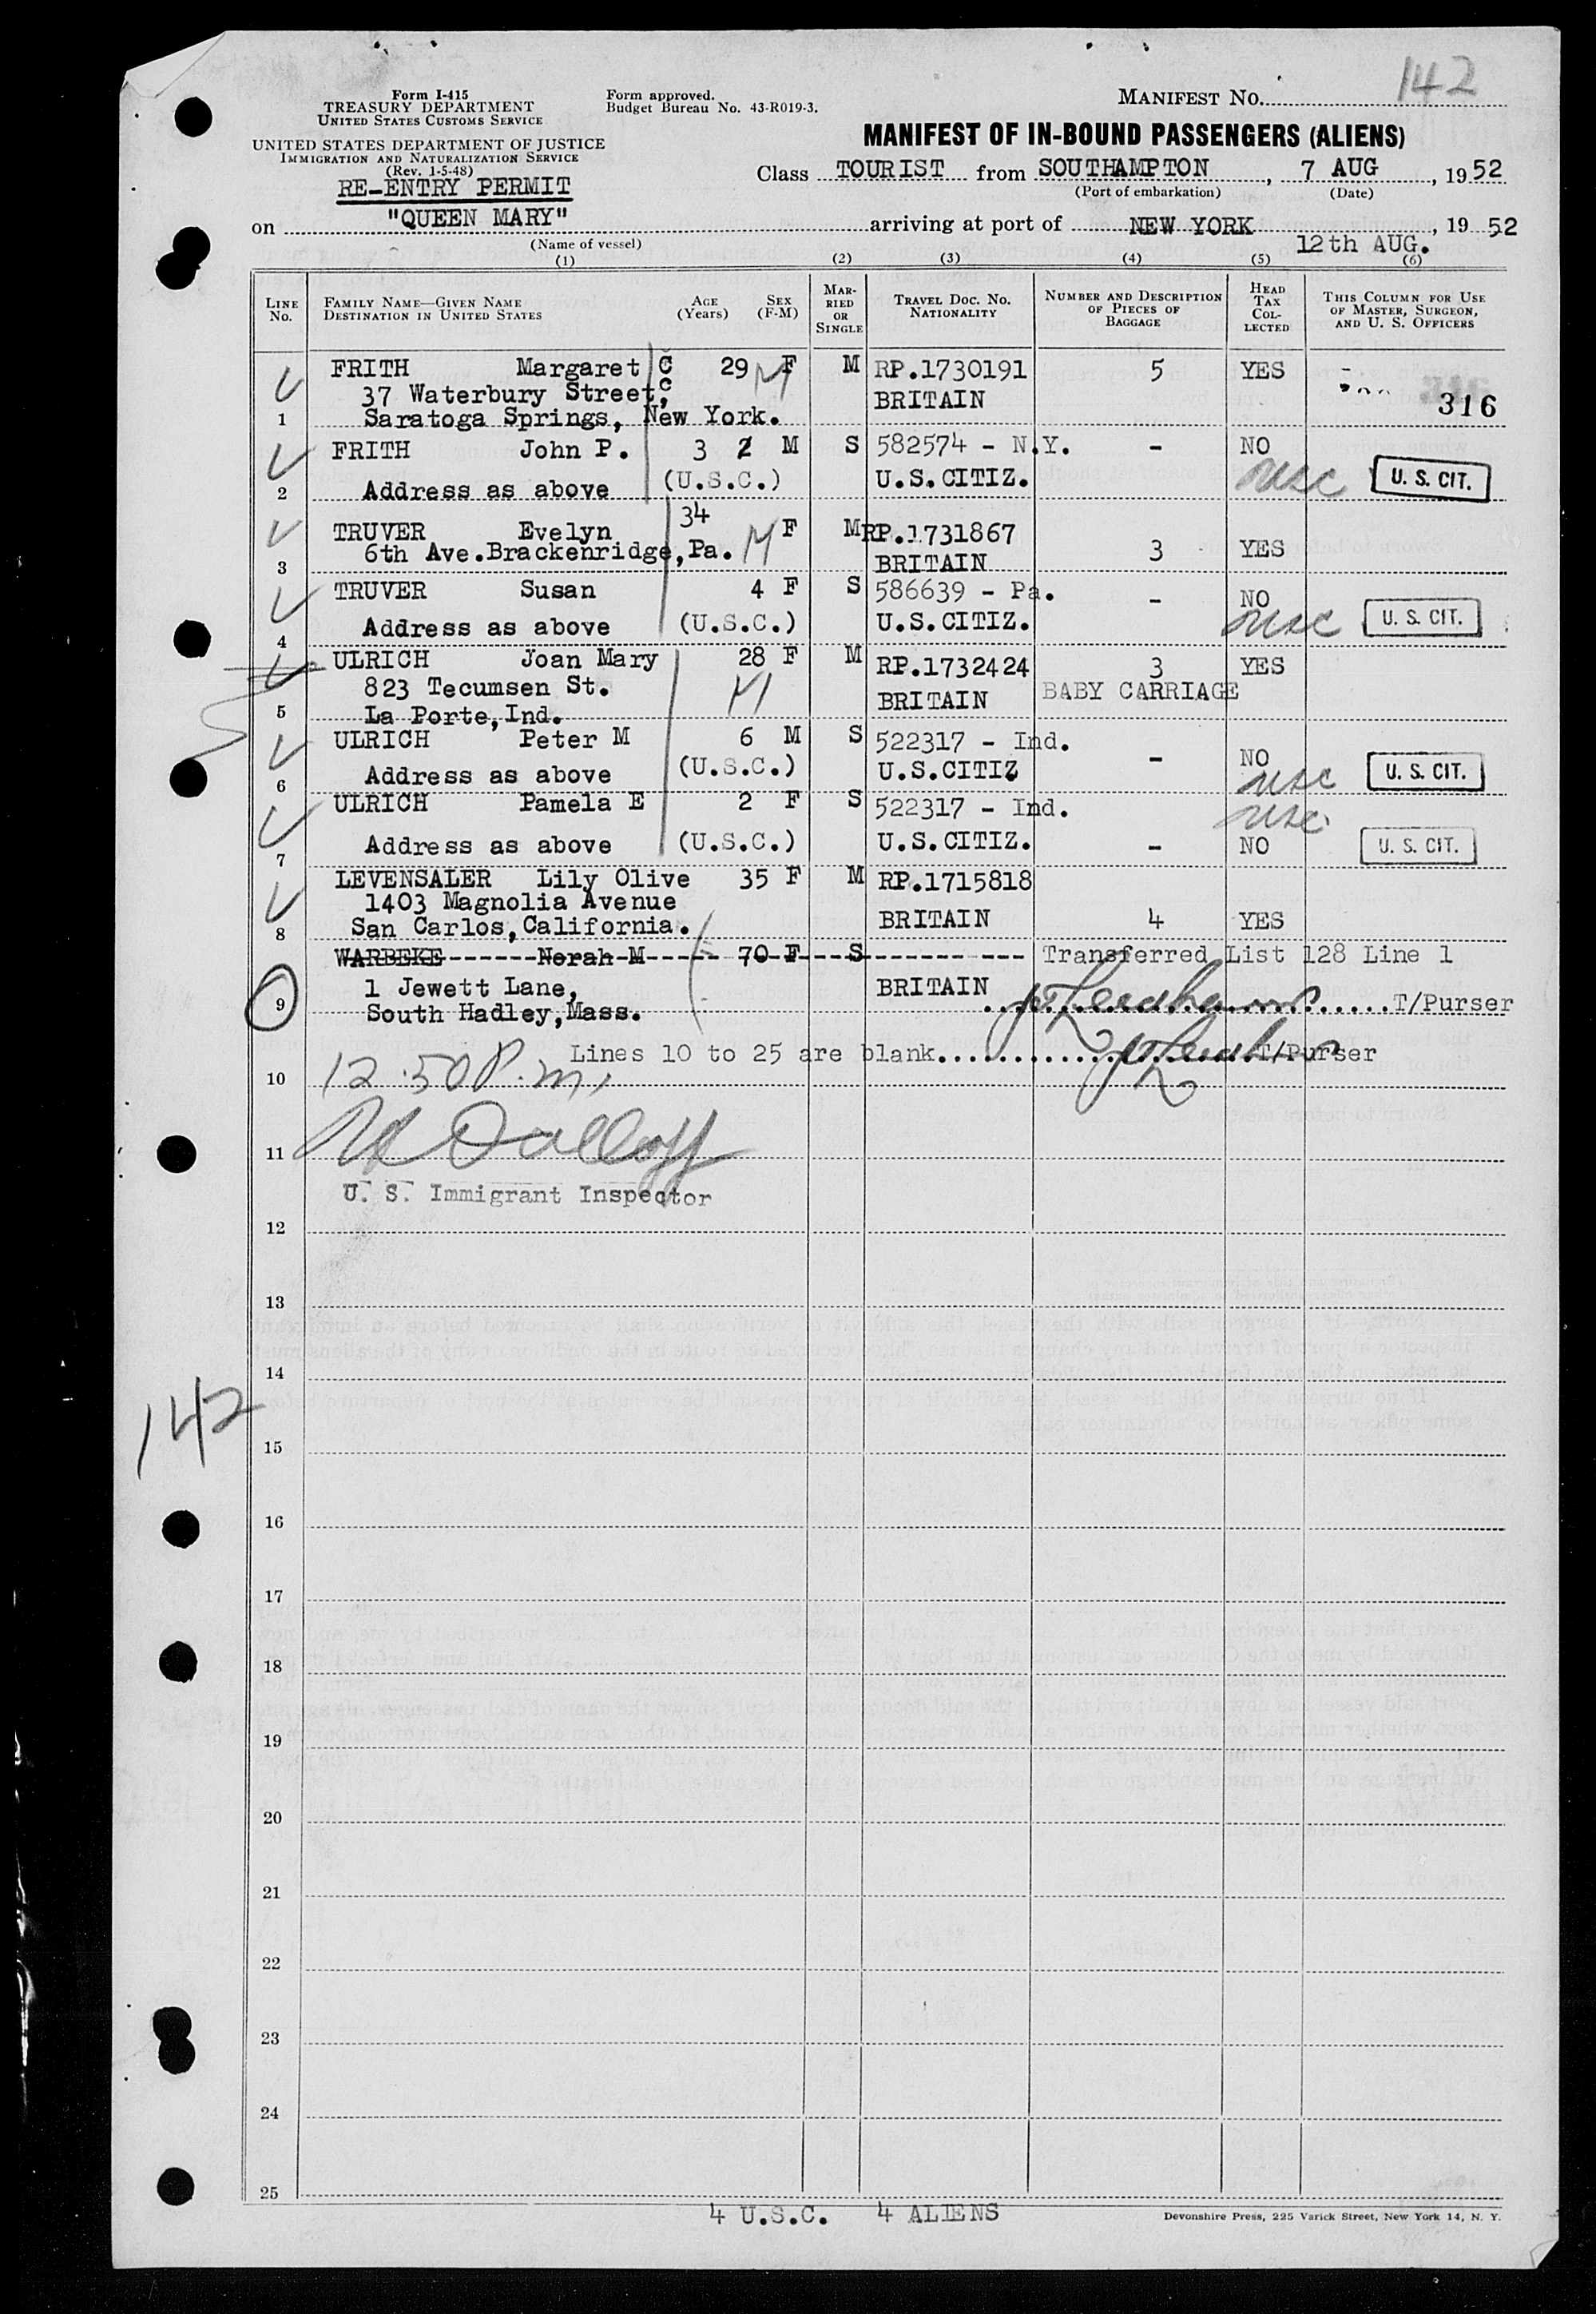 142
Form I-415
TREASURY DEPARTMENT
UNITED STATES CUSTOMS SERVICE
Form approved.
Budget Bureau No. 43-R019-3.
MANIFEST NO.
UNITED STATES DEPARTMENT OF JUSTICE
IMMIGRATION AND NATURALIZATION SERVICE
(Rev. 1-5-48)
MANIFEST OF IN-BOUND PASSENGERS (ALIENS)
RE-ENTRY PERMIT
Class TOURIST from SOUTHAMPTON, 7 AUG, 1952
(Port of embarkation) (Date)
on "QUEEN MARY" arriving at port of NEW YORK, 1952
(Name of vessel) 12th AUG.
(1) (2) (3) (4) (5) (6)
LINE No. FAMILY NAME—GIVEN NAME DESTINATION IN UNITED STATES AGE (Years) SEX (F-M) MARRIED OR SINGLE TRAVEL DOC. NO. NATIONALITY NUMBER AND DESCRIPTION OF PIECES OF BAGGAGE HEAD TAX COLLECTED THIS COLUMN FOR USE OF MASTER, SURGEON, AND U. S. OFFICERS
FRITH Margaret C 29 F M RP.1730191 5 YES
37 Waterbury Street, BRITAIN 316
1 Saratoga Springs, New York.
FRITH John P. 3 M S 582574 - N.Y. - NO
2 Address as above (U.S.C.) U.S.CITIZ. usc U. S. CIT.
34
TRUVER Evelyn F M RP.1731867
3 6th Ave.Brackenridge,Pa. M BRITAIN 3 YES
TRUVER Susan 4 F S 586639 - Pa. - NO
4 Address as above (U.S.C.) U.S.CITIZ. usc U. S. CIT.
ULRICH Joan Mary 28 F M RP.1732424 3 YES
823 Tecumsen St. M BRITAIN BABY CARRIAGE
5 La Porte,Ind.
ULRICH Peter M 6 M S 522317 - Ind. - NO
6 Address as above (U.S.C.) U.S.CITIZ usc U. S. CIT.
ULRICH Pamela E 2 F S 522317 - Ind. usc
7 Address as above (U.S.C.) U.S.CITIZ. - NO U. S. CIT.
LEVENSALER Lily Olive 35 F M RP.1715818
1403 Magnolia Avenue BRITAIN 4 YES
8 San Carlos,California.
WARBEKE Norah M 70 F S Transferred List 128 Line 1
1 Jewett Lane, BRITAIN
9 South Hadley,Mass. T/Purser
Lines 10 to 25 are blank T/Purser
10 12.50 P.m.
11
U. S. Immigrant Inspector
12
13
14
142
15
16
17
18
19
20
21
22
23
24
25
4 U.S.C. 4 ALIENS
Devonshire Press, 225 Varick Street, New York 14, N. Y.